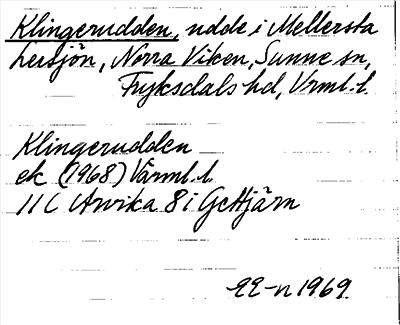 Klingerudden, udde i Mellersta
Lersjön, Norra Viken, Sunne sn,
Fryksdals hd, Vrml. l.
Klingerudden
ek (1968) Värml. l.
11 C Arvika 8 i Gettjärn
1969.